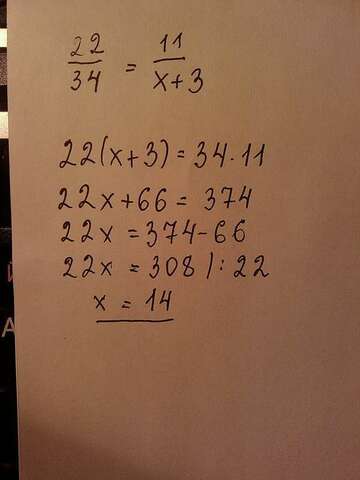 22/34 = 11/x+3
22(x+3)=34·11
22x+66= 374
22x =374-66
22x = 308 /: 22
x = 14
й
A